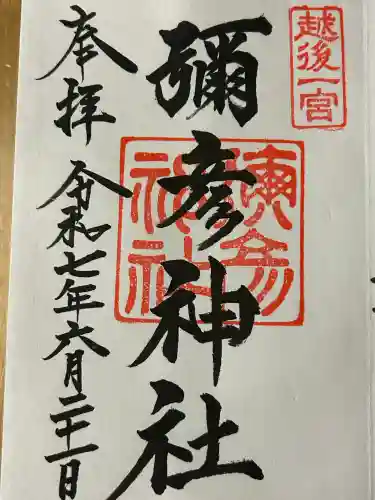 越後一宮
彌彦神社
彌彦神社
奉拝
令和七年六月二十一日